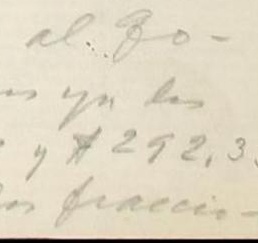 al Go-
ya los
y $292,3
los fraccio-